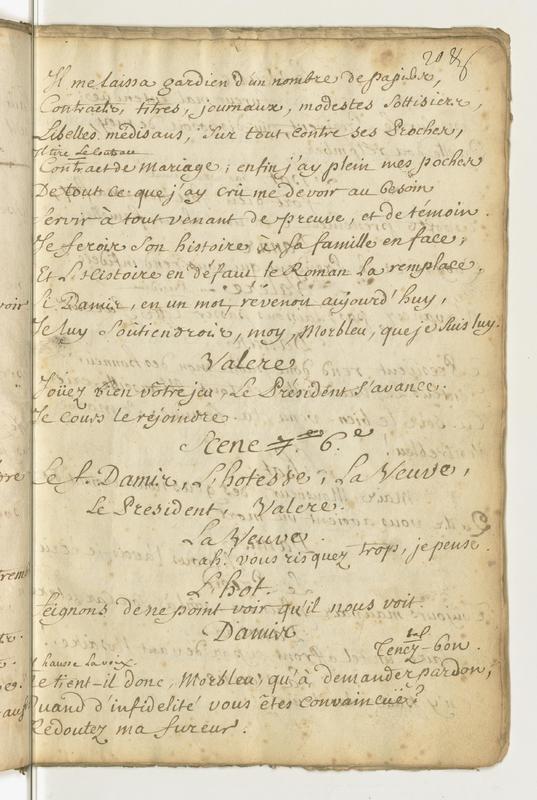 20 86
Il me laissa gardien d'un nombre de papiers,
Contracts, titres, journaux, modestes sottisiers,
Libelles médisans, sur tout contre ses Proches,
Il tire
Contract de Mariage; enfin j'ay plein mes poches
De tout ce que j'ay crû me devoir au besoin
Servir à tout venant de preuve, et de témoin.
Je ferois son histoire à sa famille en face,
Et L'histoire en défaut le Roman la remplace,
Si Damis, en un mot, revenoit aujourd'huy,
Je luy soutiendrois, moy, Morbleu, que je suis luy.
Valere
Joüez bien vôtre jeu. Le Président s'avance.
Je cours le rejoindre.
Scene 7.e 6.e
Le f. Damis, L'hotesse, La Veuve,
Le President, Valere.
La Veuve.
ah! vous risquez trop, je pense.
L'hot.
Feignons de ne point voir qu'il nous voit.
Damis
Tenez-bon.
hausse la voix.
Ne tient-il donc, Morbleu, qu'à demander pardon,
Quand d'infidelité vous êtes convaincuë?
Redoutez ma fureur.
voir